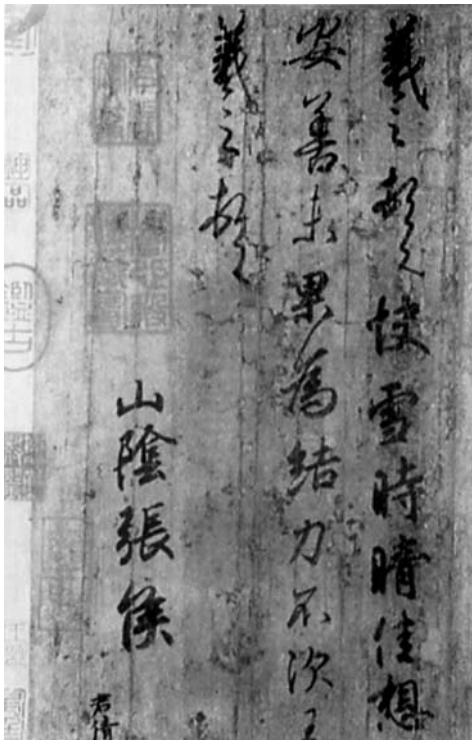 羲之頓首快雪時晴佳想
安善未果為結力不次王
羲之頓首
山陰張侯
君倩
神品